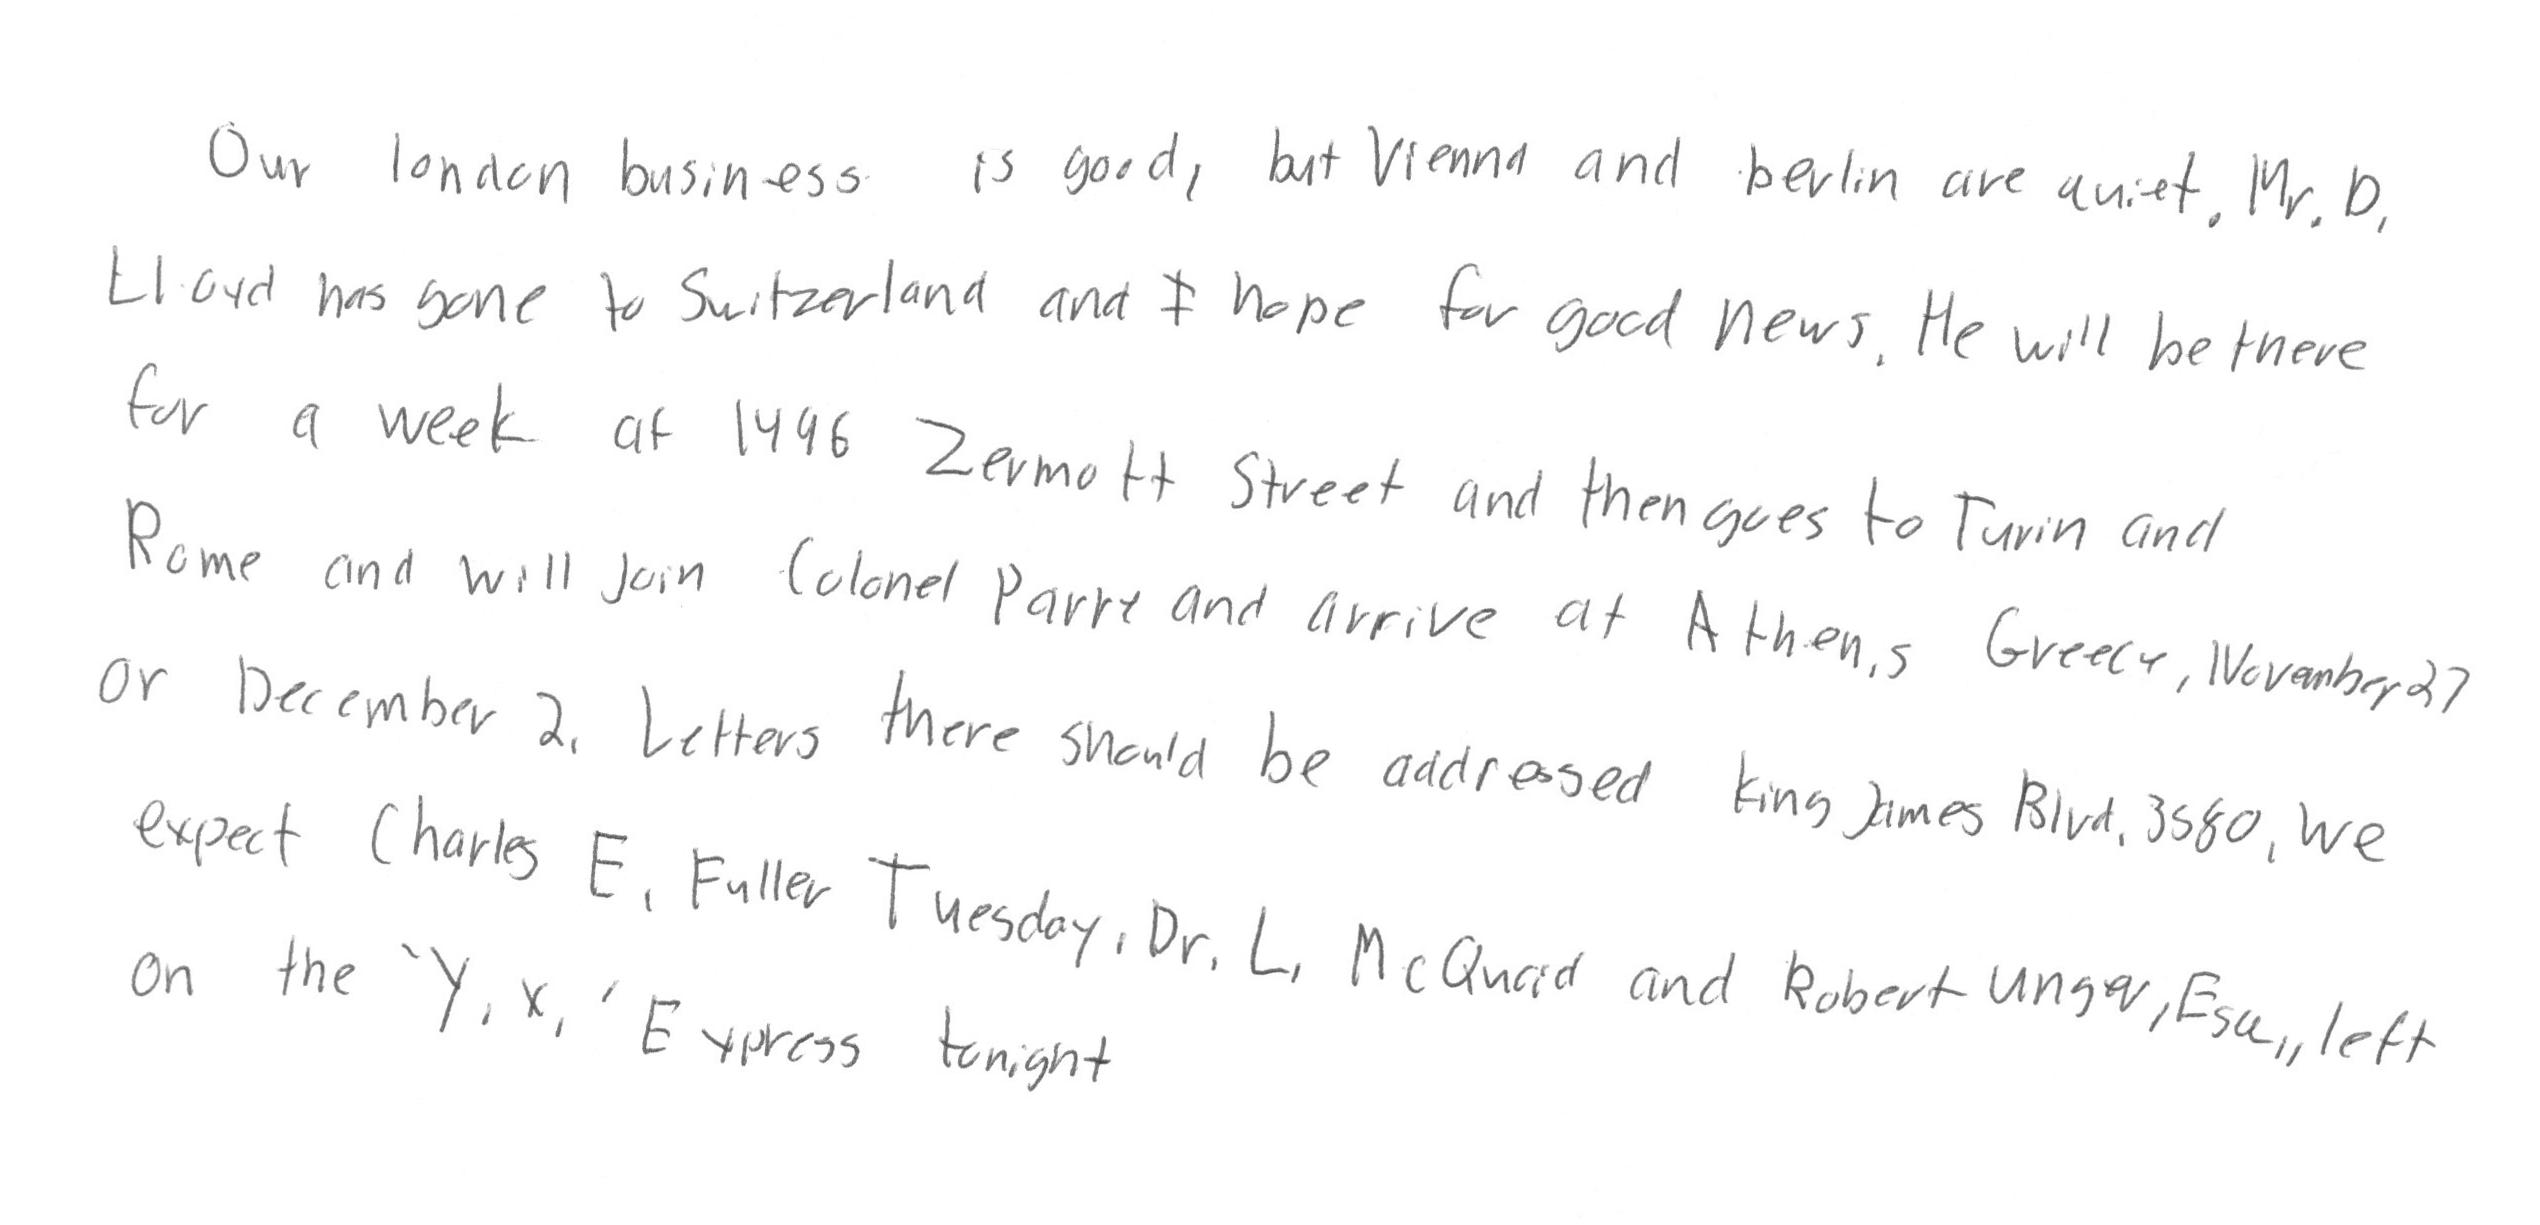 Our london business is good, but Vienna and berlin are quiet. Mr. D.
Lloyd has gone to Switzerland and I hope for good news. He will be there
for a week at 1496 Zermott Street and then goes to Turin and
Rome and will join Colonel Parry and arrive at Athen,s Greece, November 27
or December 2. Letters there should be addressed king James Blvd. 3580. We
expect Charles E. Fuller Tuesday. Dr. L. McQuaid and Robert Unger, Esq,, left
on the 'Y. X.' Express tonight